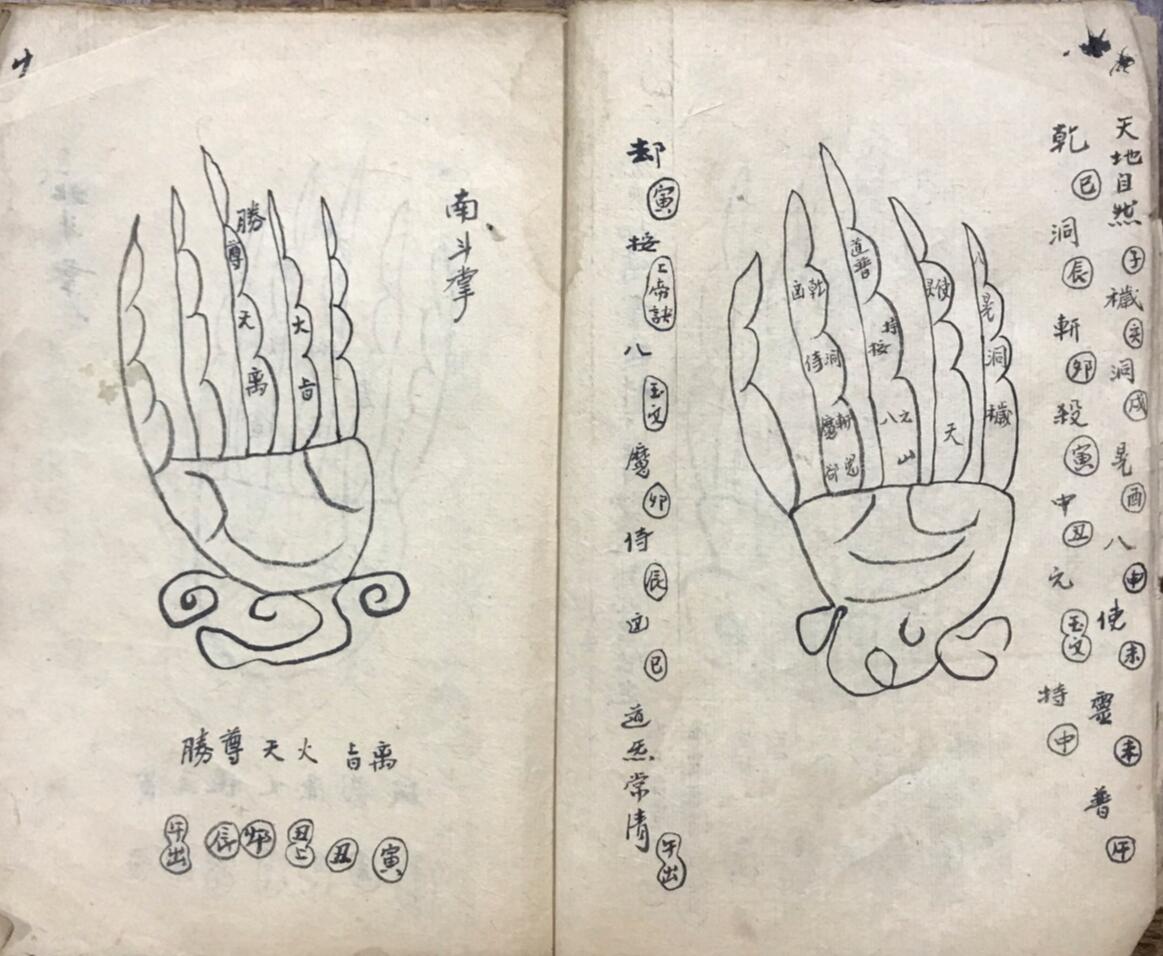 天地自然㊉子穢亥洞戌晃酉八申使未靈未普午
乾巳洞辰斬卯殺寅中丑元玉文特中
道普
乾
洞
侍
特
按
斬
魔
八
山
天
晃
洞
穢
却寅按上帝訣八玉文魔卯侍辰凶巳
道炁常清午出
南斗掌
勝
尊
天
离
火
旨
勝尊天火旨离
午出辰卯丑上丑寅